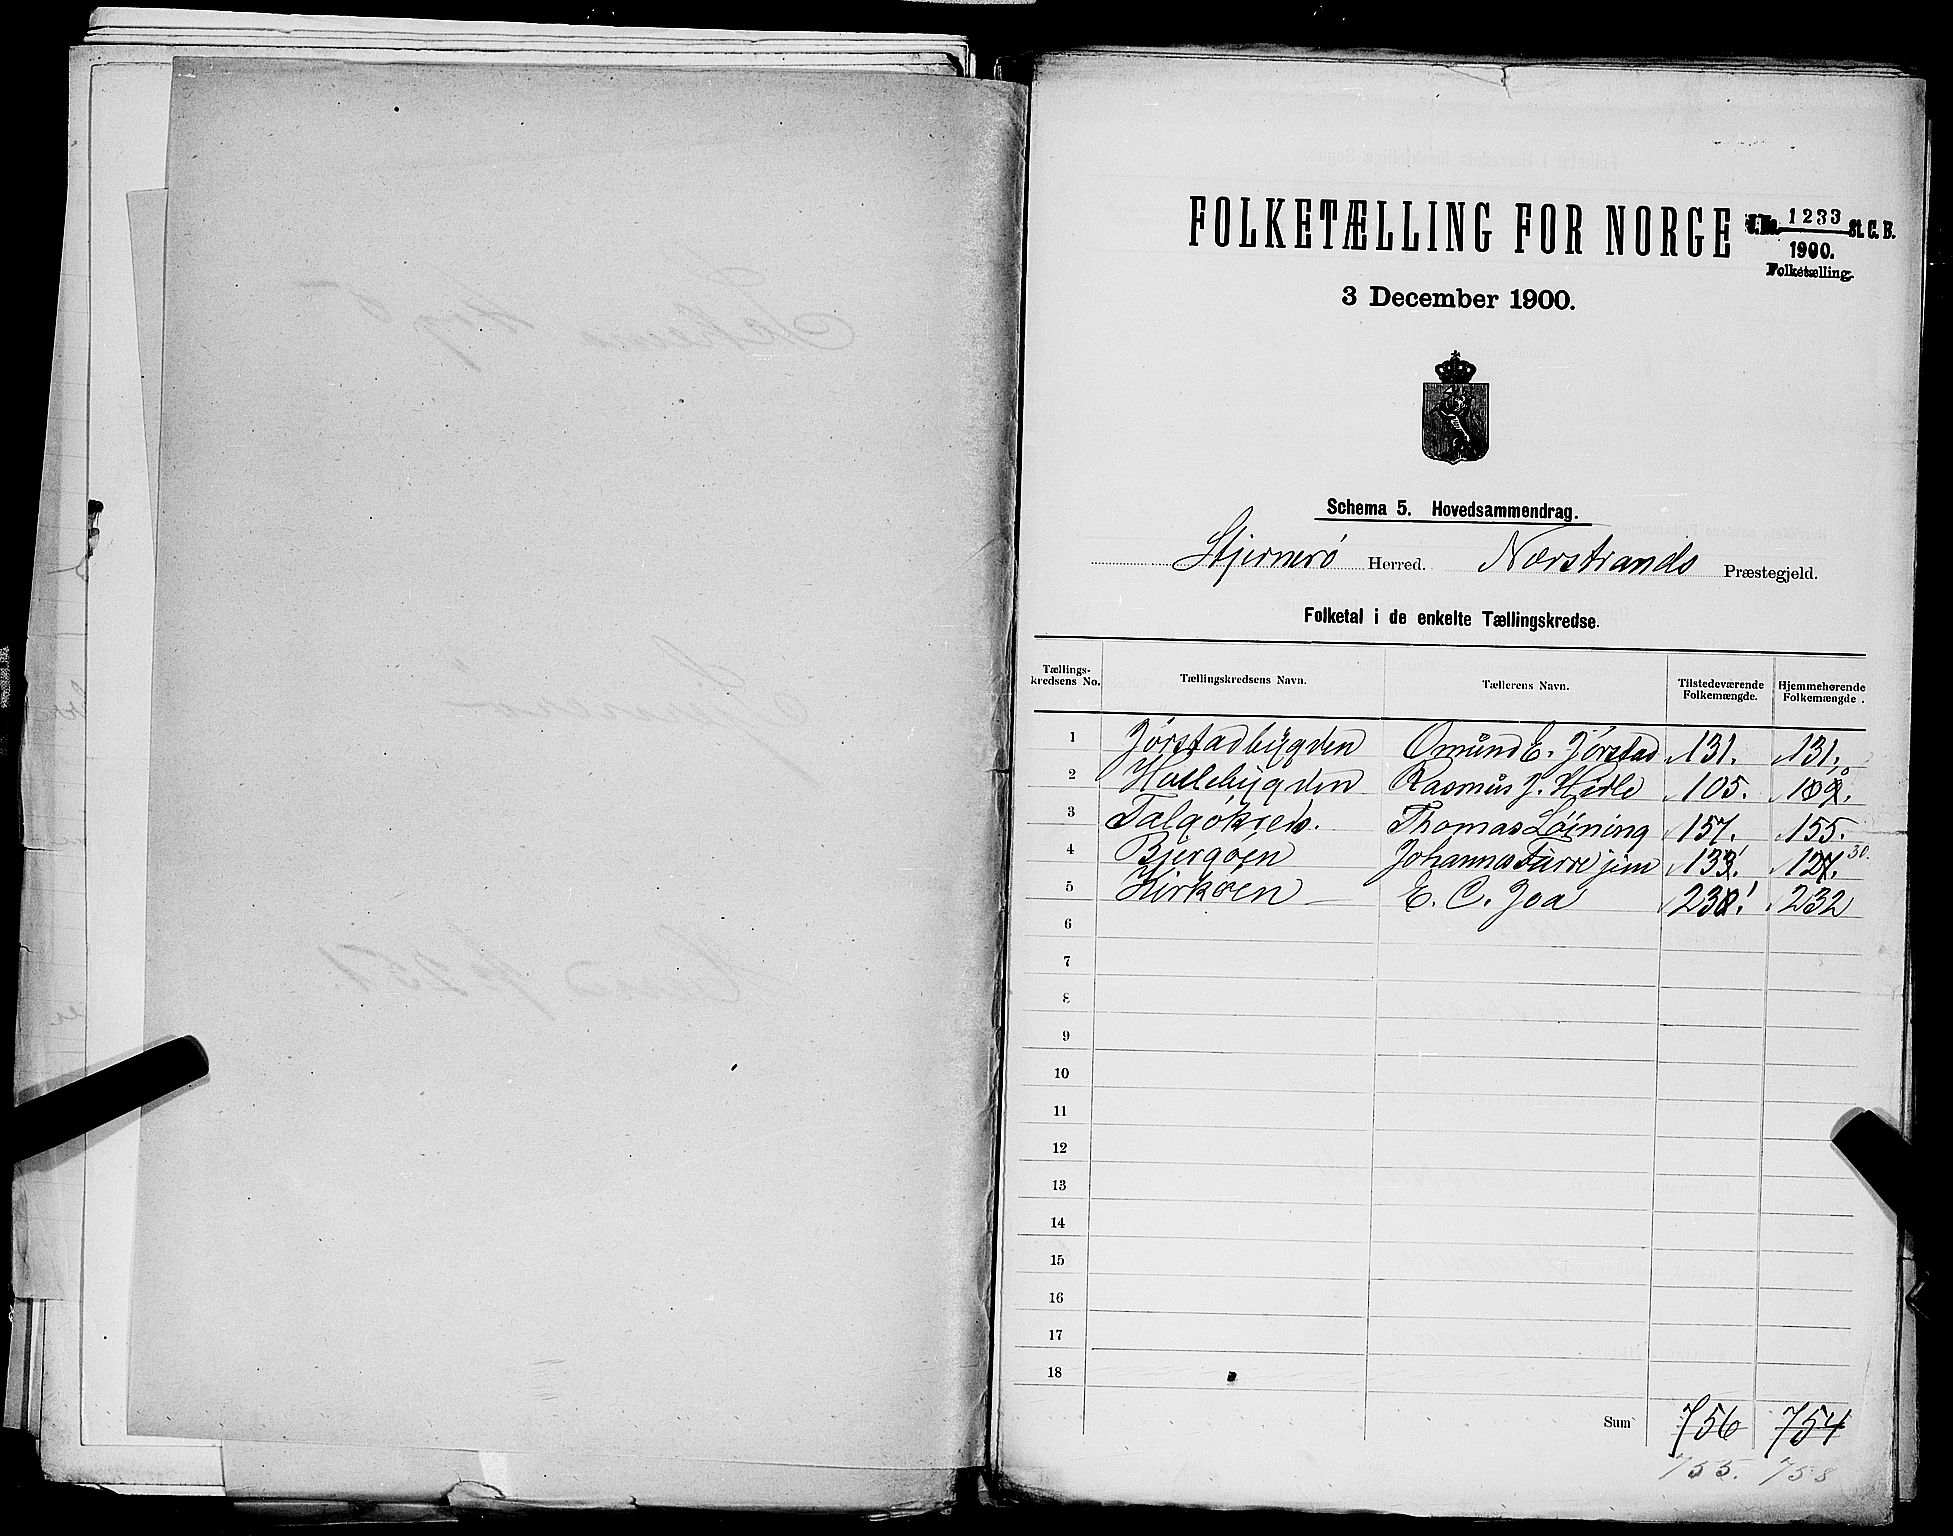 FOLKETÆLLING FOR NORGE
J. No. 1233 St. C. B.
1900.
Folketælling.
3 December 1900.
Schema 5. Hovedsammendrag.
Stjernerö Herred. Nærstrands Præstegjeld.
Folketal i de enkelte Tællingskredse.
Tællings-kredsens No. Tællingskredsens Navn. Tællerens Navn. Tilstedeværende Folkemængde. Hjemmehørende Folkemængde.
1 Jørstadbygden Omund E. Jørstad 131. 131.
2 Hallebygden Rasmus J. Hidle 105.
3 Talgökreds. Thomas Löining 157. 155.
4 Bjergöen Johannes 133. 127. 30.
5 Kirköen E. C. Joa 232
6
7
8
9
10
11
12
13
14
15
16
17
18
Sum 756 754
755. 758